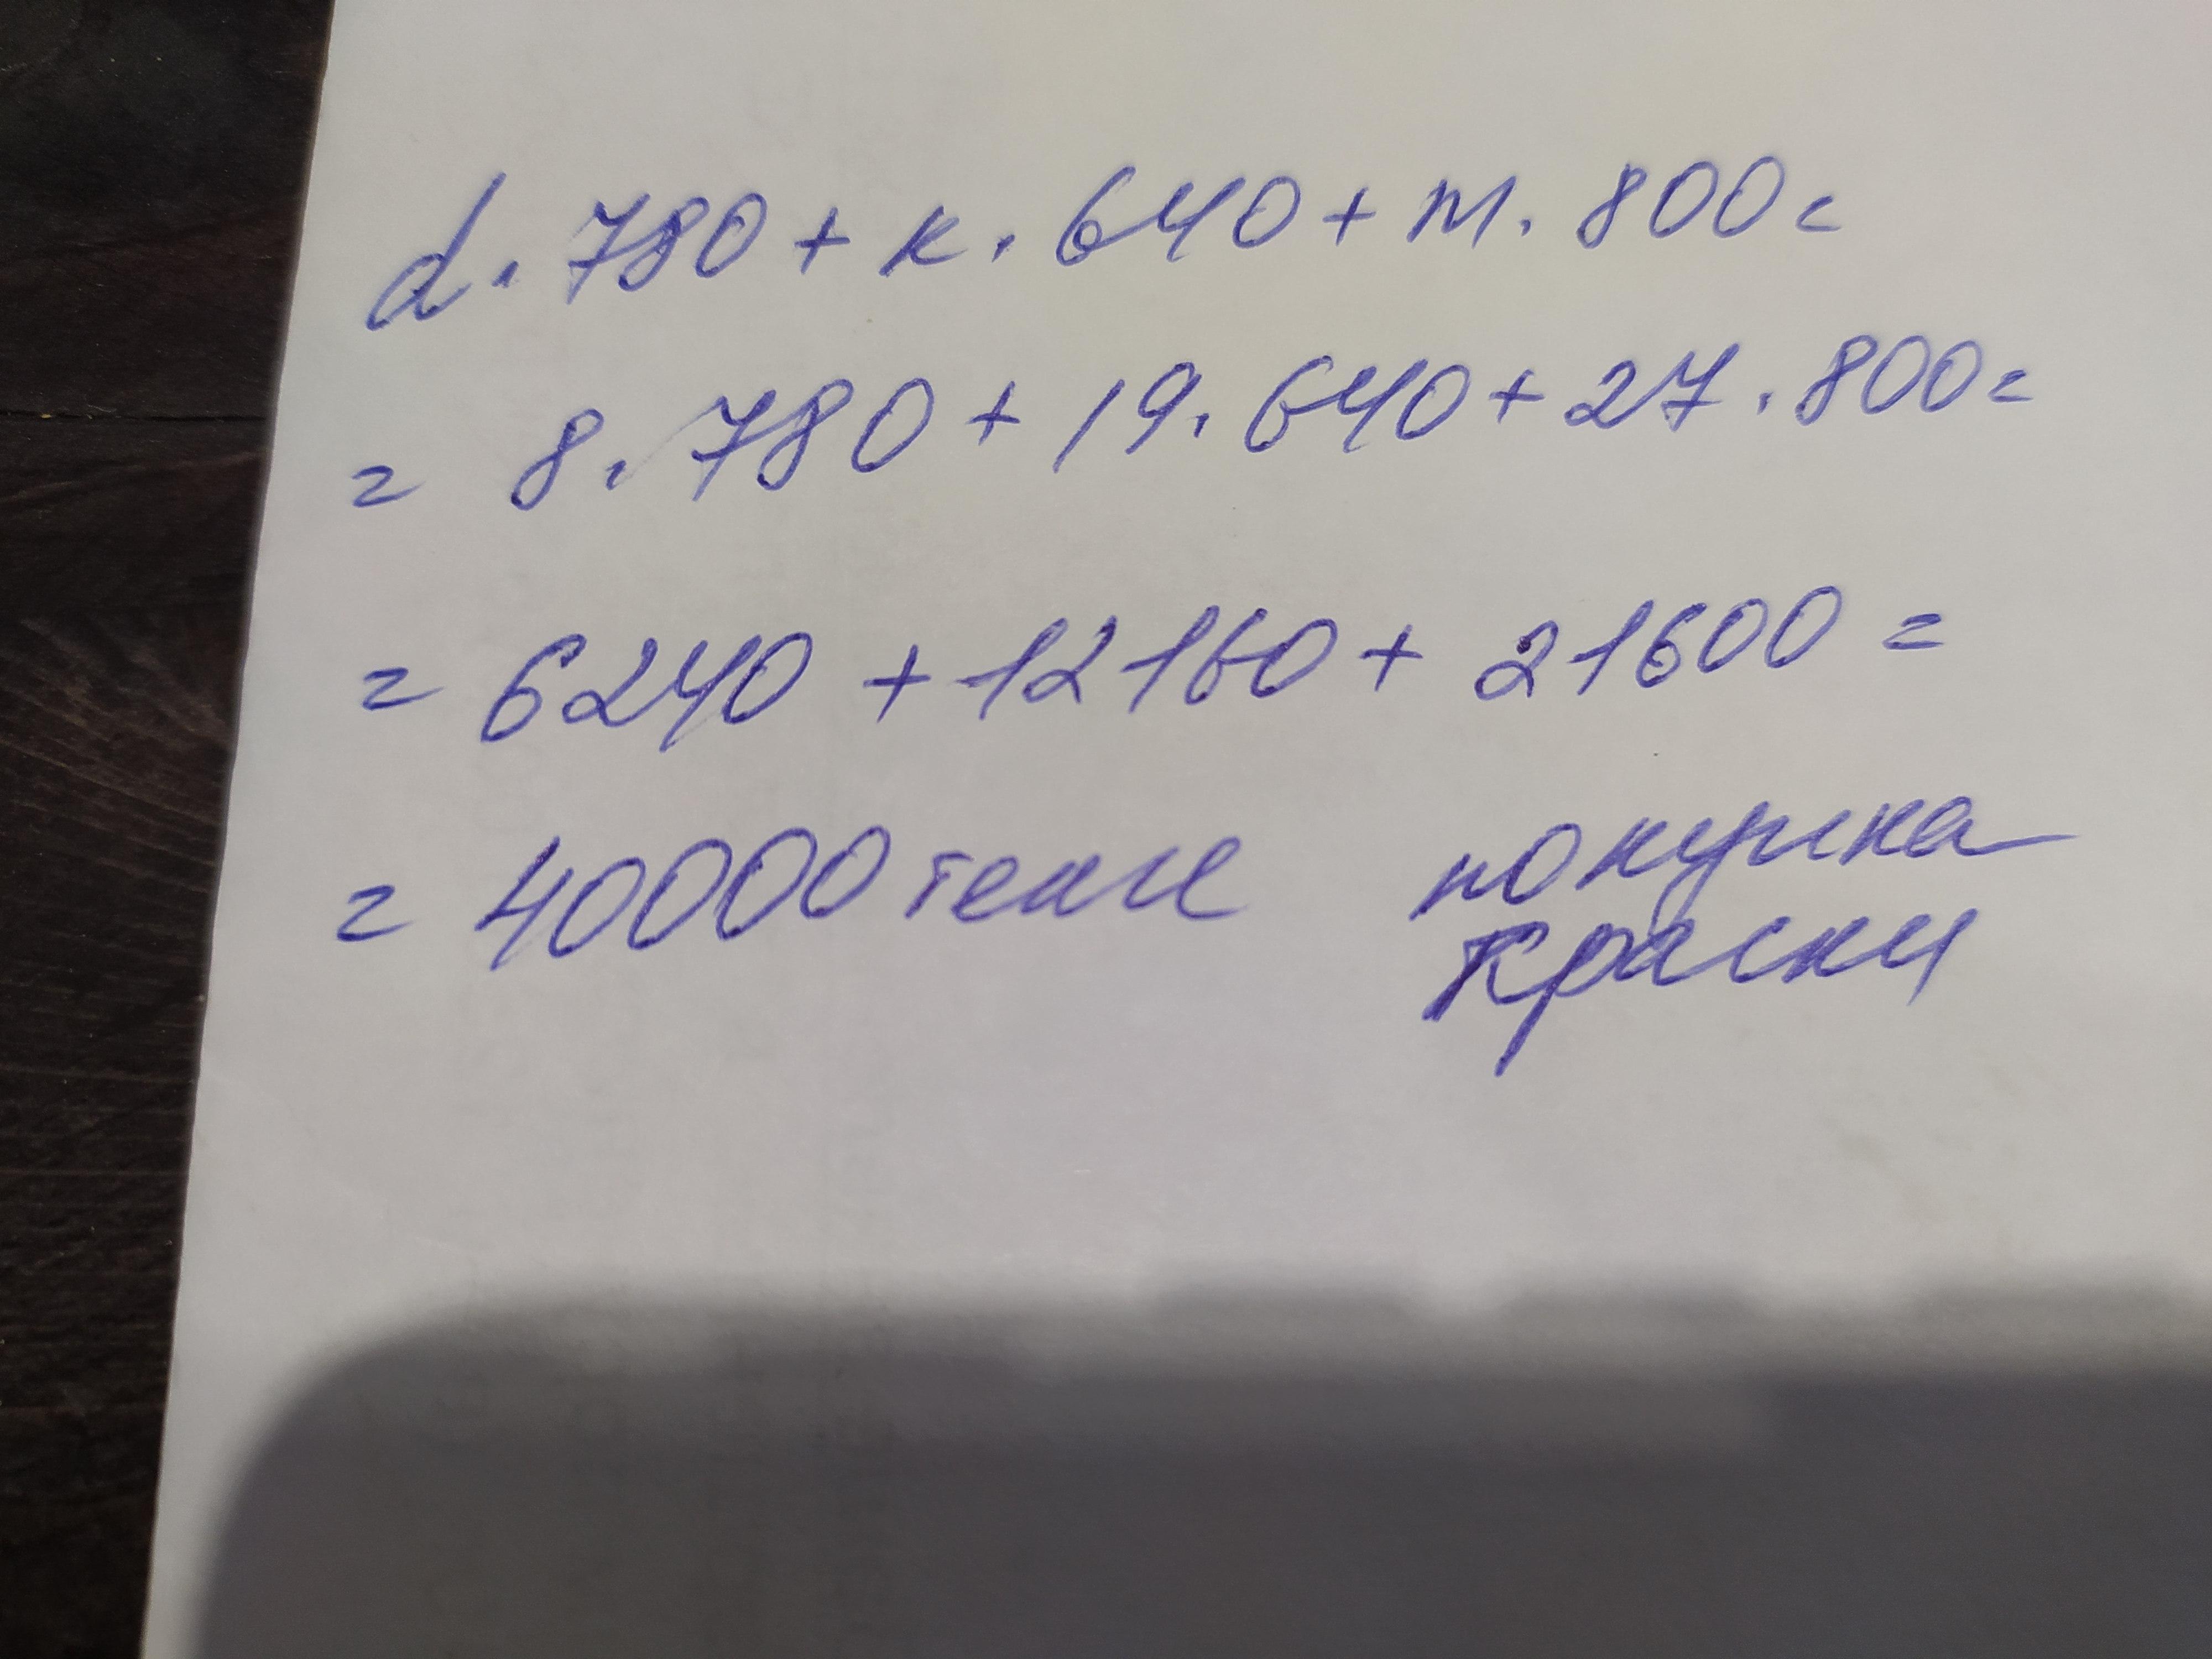 d. 780 + к. 640 + m. 800 =
= 8. 780 + 19. 640 + 27. 800 =
= 6240 + 12160 + 21600 =
= 40000 тенге покупка
краски